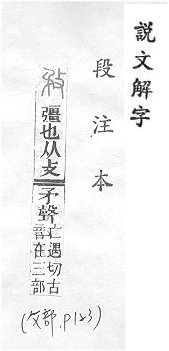 説文解字
段注本
敄
彊也从攴
矛聲
亡遇切古
音在三部
(攵部, P123)